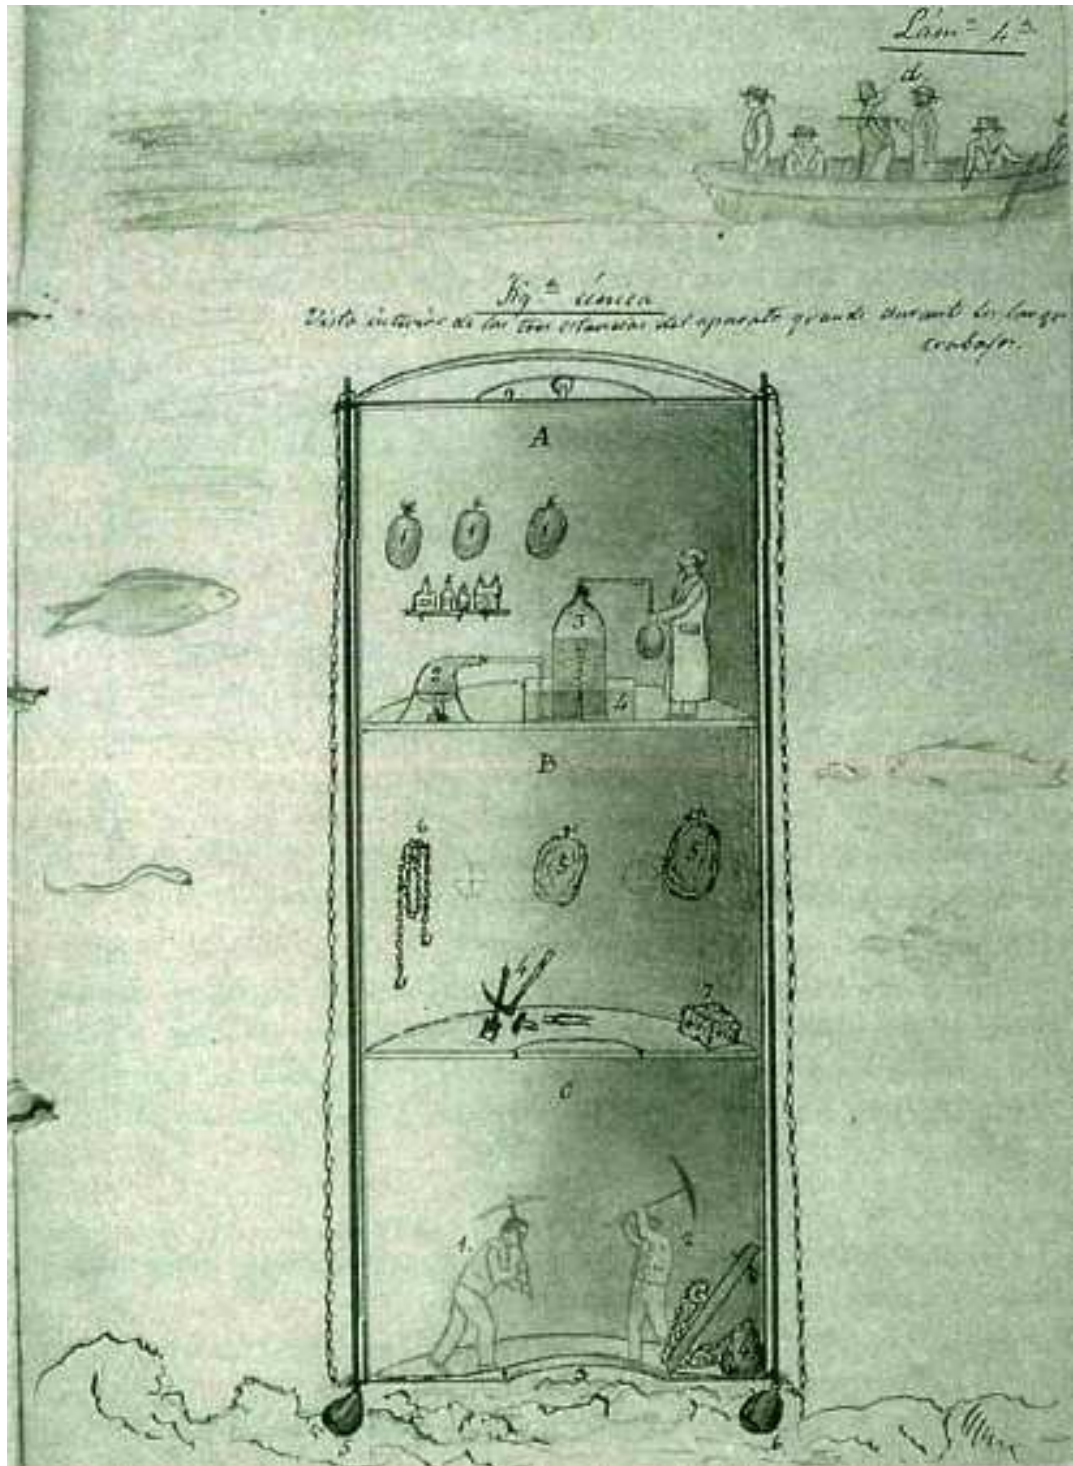 Lámª 4ª
d
Figª única
Vista interior de las tres estancias del aparato grande durante los largos
trabajos.
9
A
1 1 1
3
2
4
B
6
5 5
4
7
C
1. 2
4
3
5 6